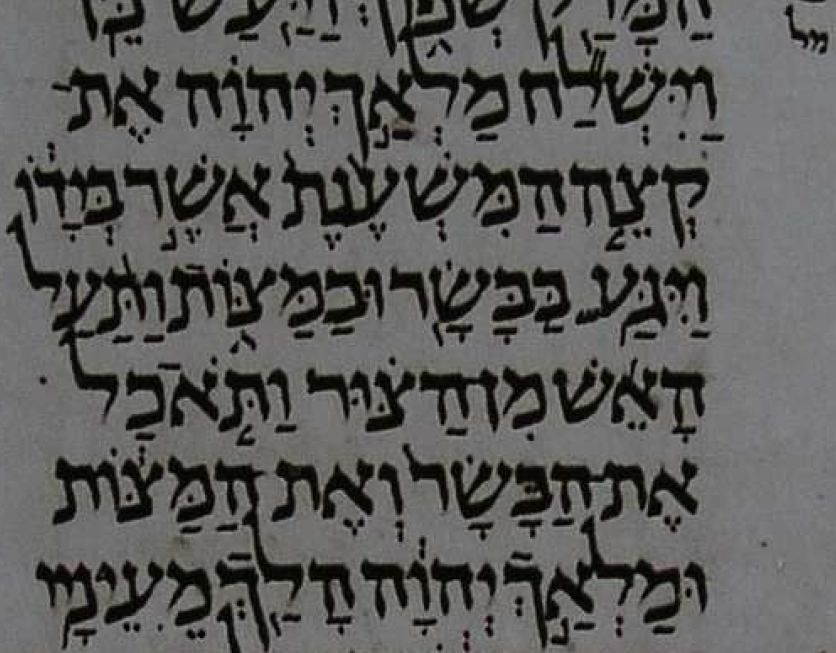 הַמָּרַק שְׁפוֹךְ וַיַּעַשׂ כֵּן
וַיִּשְׁלַ֞ח מַלְאַ֣ךְ יְהוָ֗ה אֶת־
קְצֵ֤ה הַמִּשְׁעֶ֙נֶת֙ אֲשֶׁ֣ר בְּיָד֔וֹ
וַיִּגַּ֥ע בַּבָּשָׂ֖ר וּבַמַּצּ֑וֹת וַתַּ֨עַל
הָאֵ֜שׁ מִן הַצּ֗וּר וַתֹּ֙אכַל֙
אֶת־הַבָּשָׂ֣ר וְאֶת־הַמַּצּ֔וֹת
וּמַלְאַ֣ךְ יְהוָ֔ה הָלַ֖ךְ מֵעֵינָֽיו